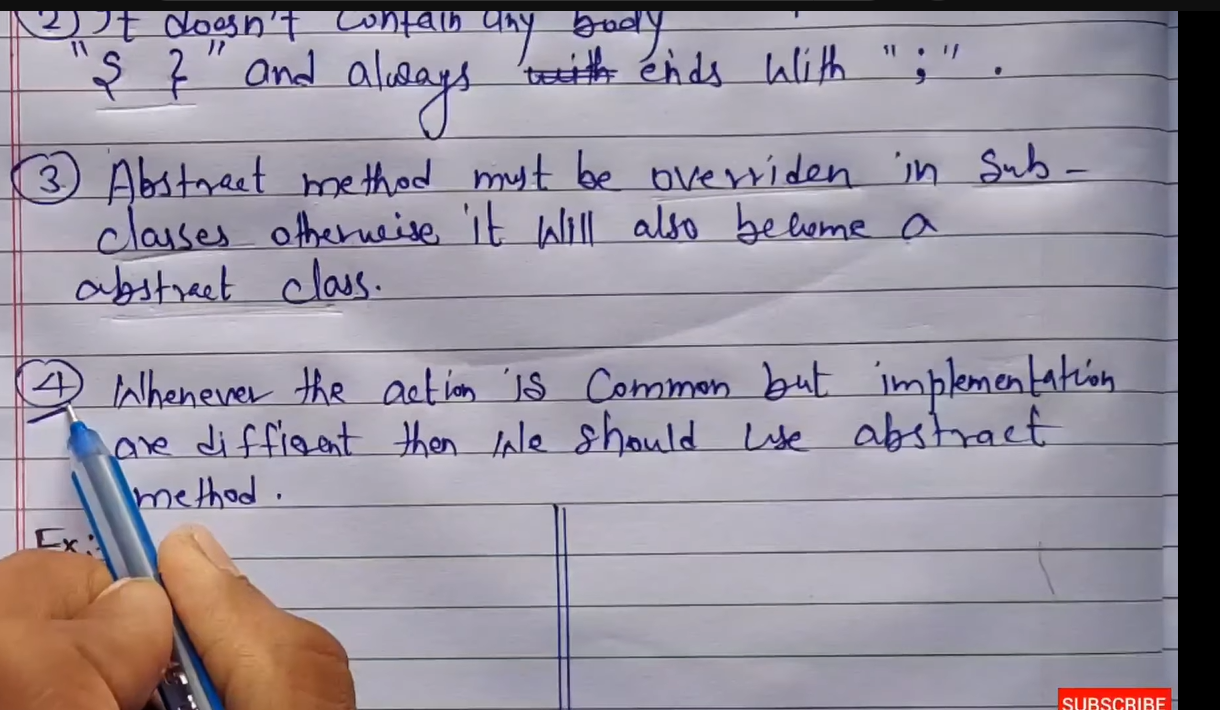 2) It doesn't contain any body
"{ }" and always with ends with ";".
3 Abstract method must be overriden in Sub-
classes otherwise it will also become a
abstract class.
4 Whenever the action is Common but implementation
are diffient then we should use abstract
method.
Ex:-
SUBSCRIBE